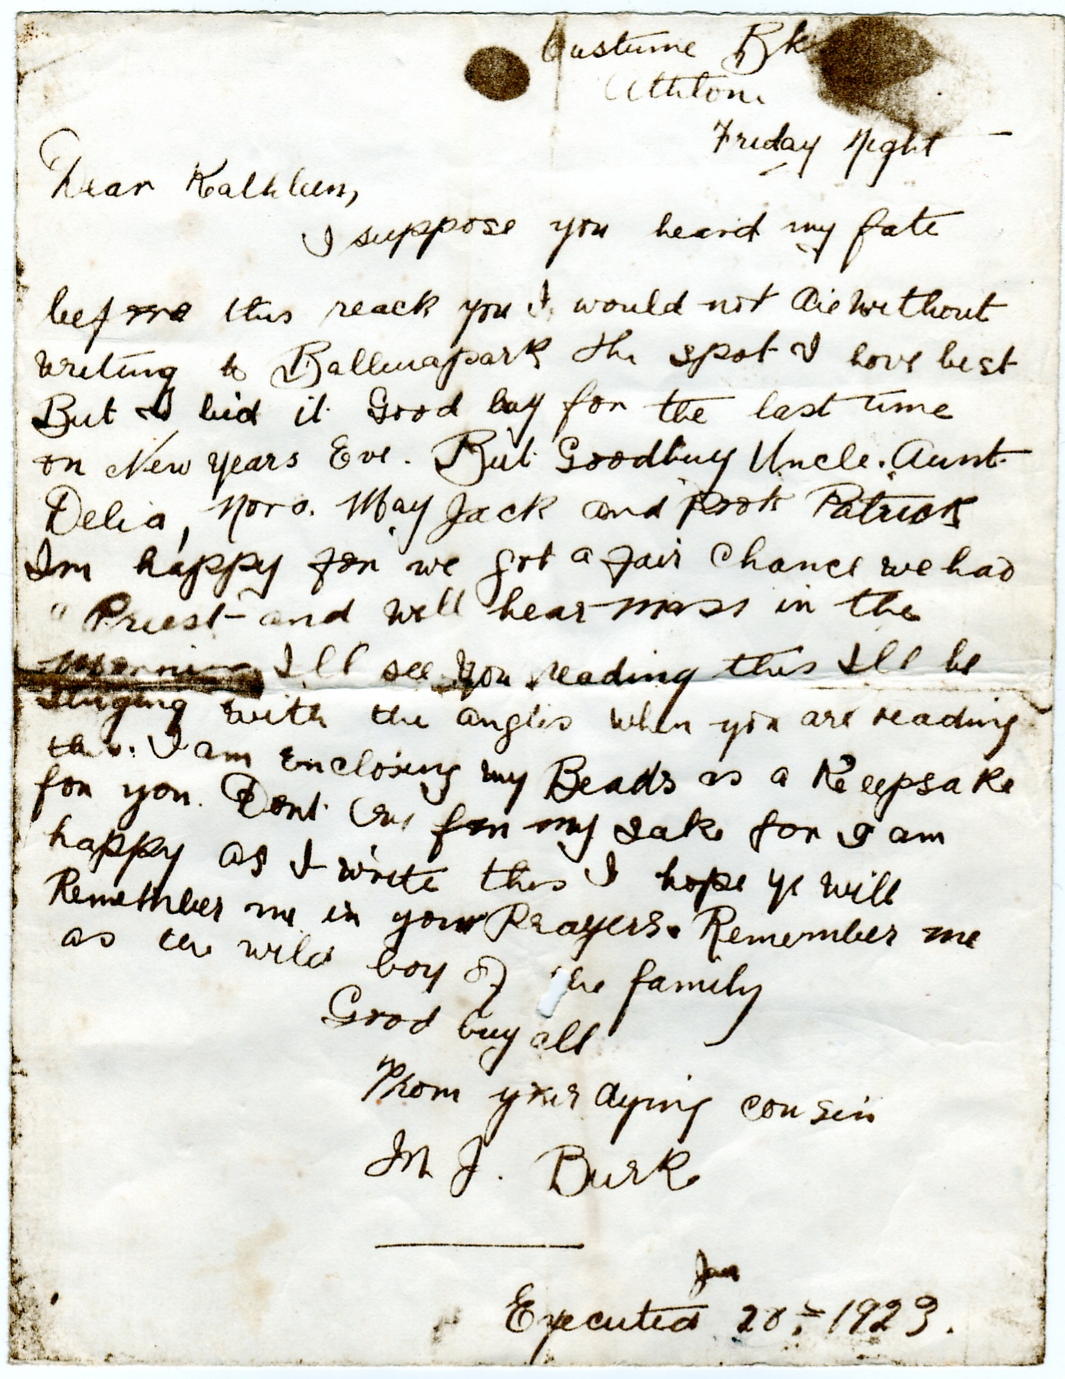 Custume Bks
Athlone
Friday Night
Dear Kathleen,
I suppose you heard my fate
before this reack you I would not die without
writing to Ballinapark the spot I love best
But I bid it Good buy for the last time
on New Years Eve. But Goodbuy Uncle. Aunt
Delia, Nora. May Jack and Patrick
Im happy for we got a fair chance we had
" Priest and will hear mass in the
morning I ll see you reading this I ll be
singing with the angles when you are reading
this. I am Enclosing my Beads as a Keepsake
for you. Dont Cry for my sake for I am
happy as I write this I hope ye will
Remember me in your Prayers. Remember me
as the wild boy of the family
Good buy all
From your dying cousin
M J. Burke
Jan
Executed 20th 1923.